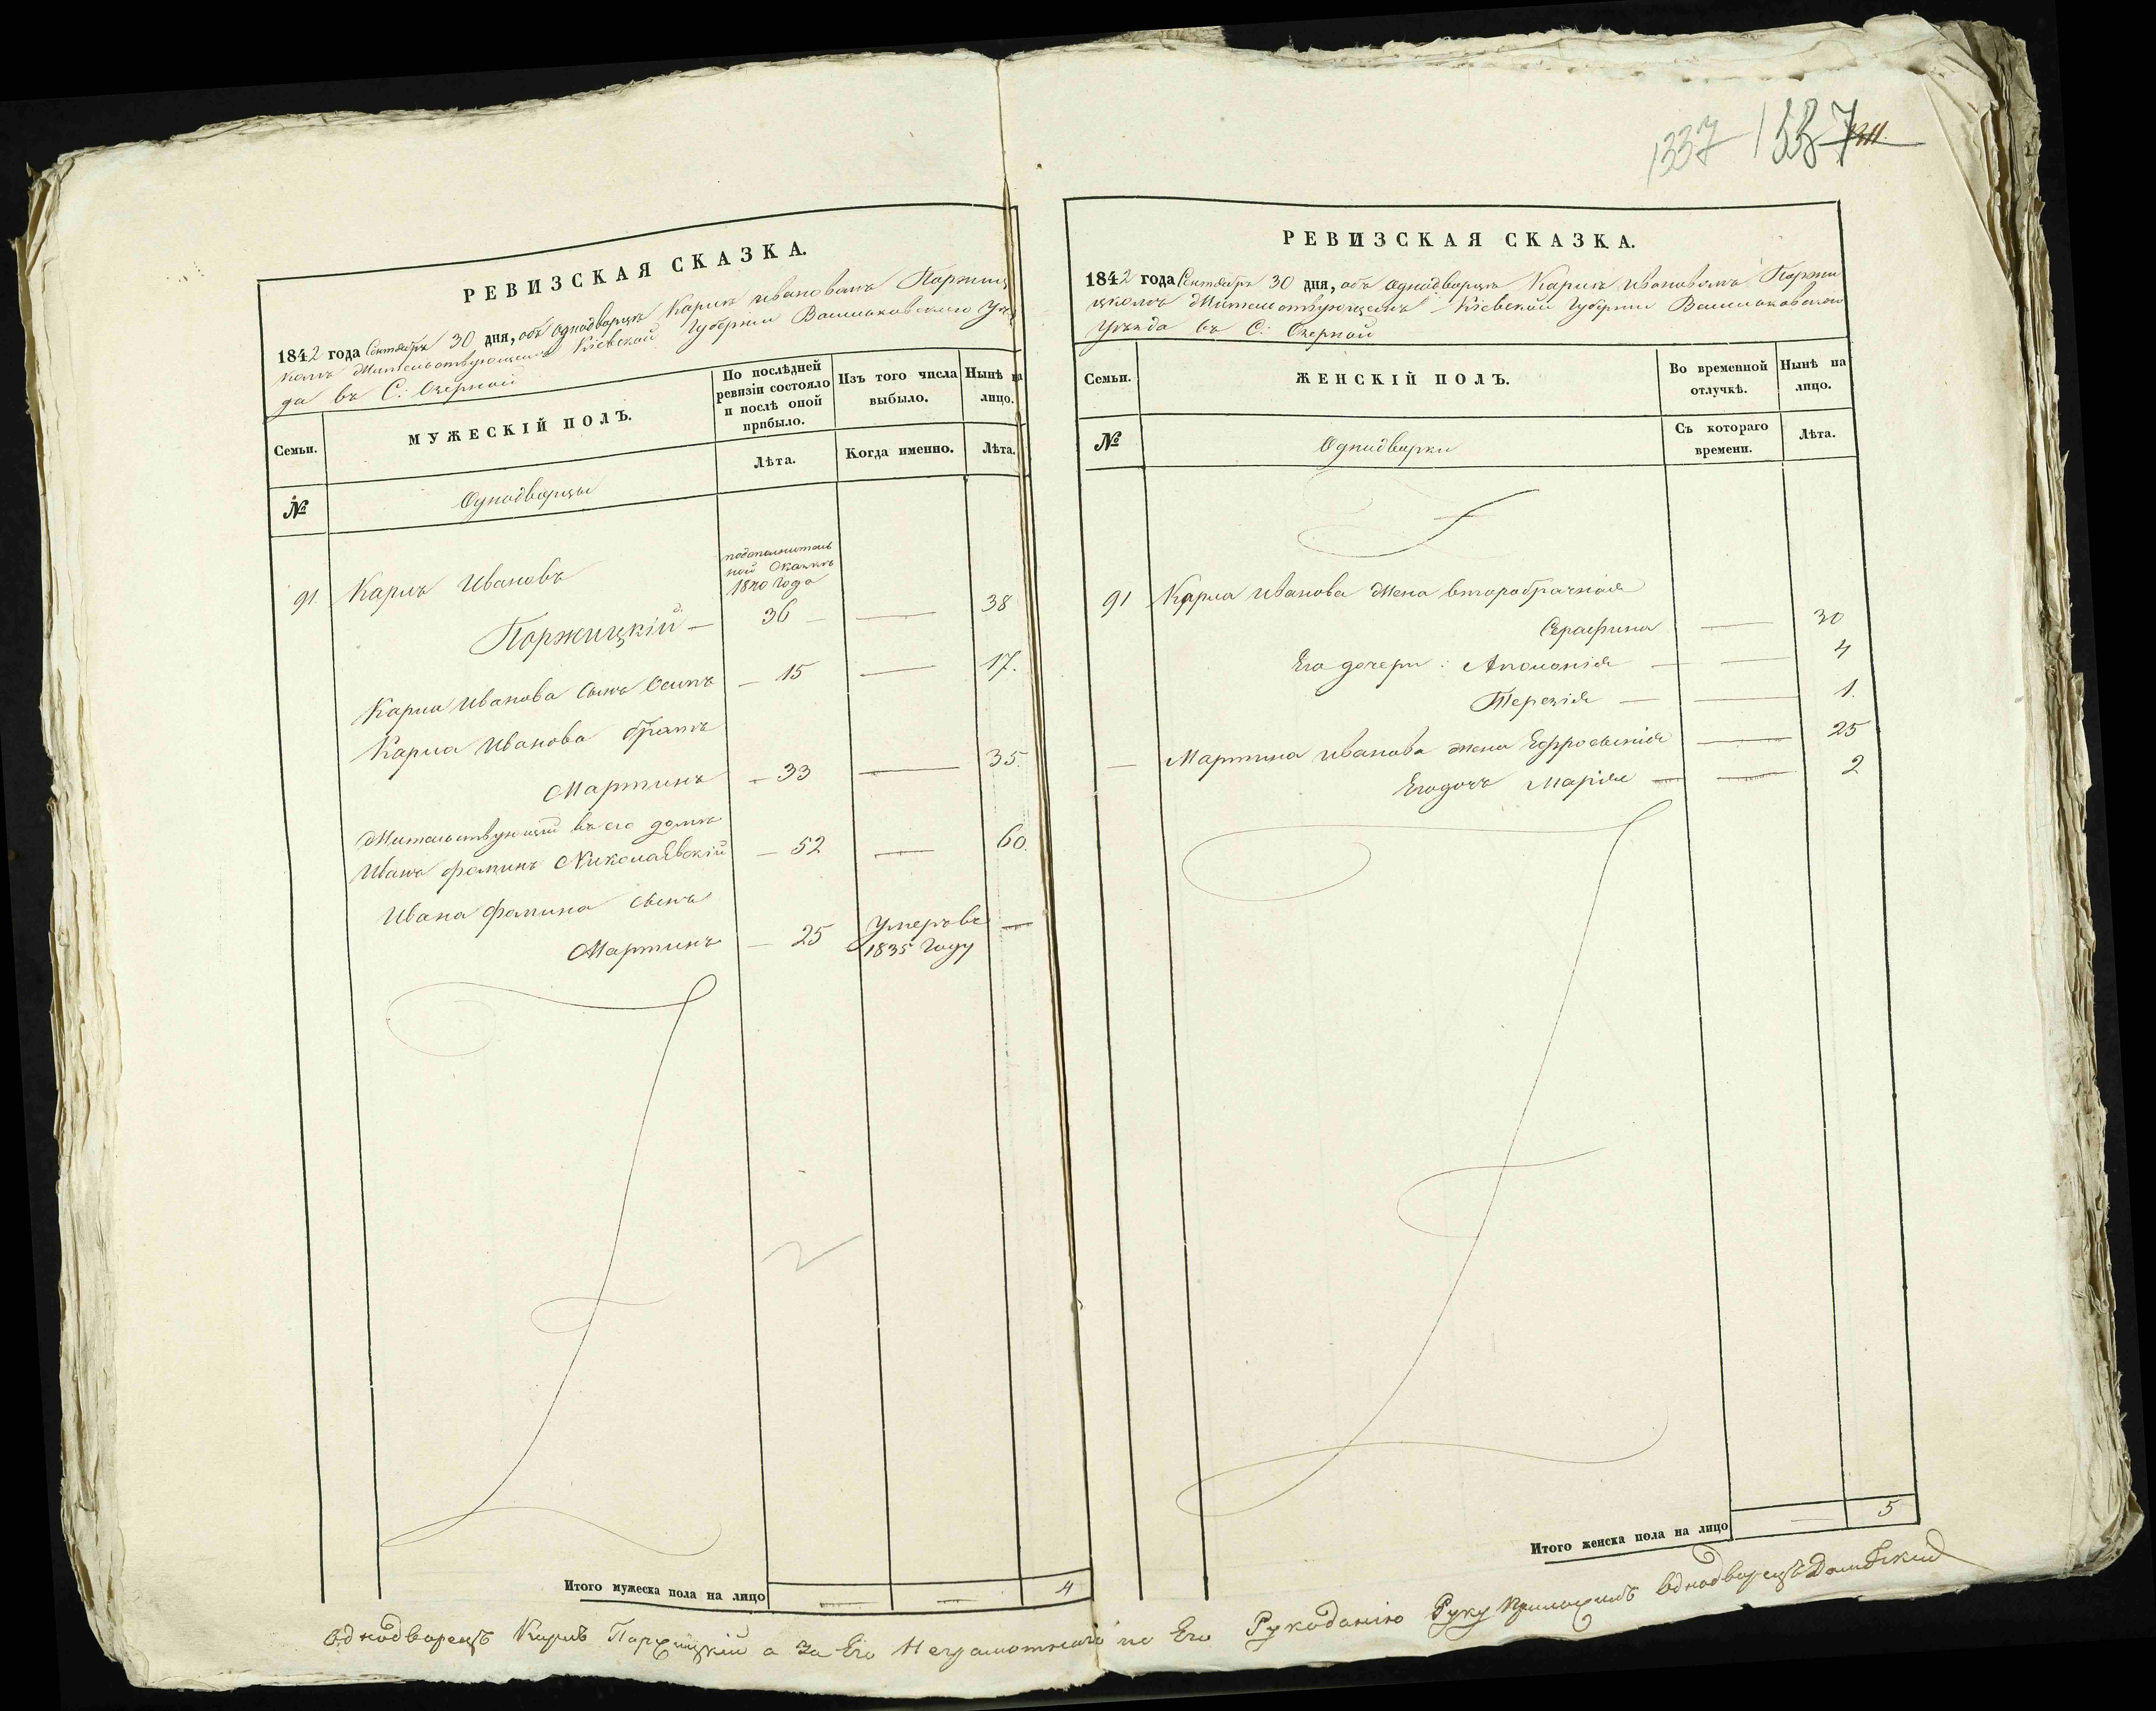 1337 1337
РЕВИЗСКАЯ СКАЗКА.
1842 года Сентября 30 дня, объ однодворцѣ Карлѣ Ивановѣ Поржиц
комъ Жительствующемъ Кіевской Губерніи Васильковскаго Уѣз
да въ С: Озерной
Семьи.
МУЖЕСКІЙ ПОЛЪ.
По послѣдней
ревизіи состояло
и послѣ оной
прибыло.
Изъ того числа
выбыло.
Нынѣ на
лицо.
№
Однодворцы
Лѣта.
Когда именно.
Лѣта.
подополнитель
ной Сказкѣ
1840 года
91. Карлъ Ивановъ
Поржицкій — 36 — — 38
Карла Иванова сынъ Осипъ — 15 — 17.
Карла Иванова братъ
Мартинъ — 33 — 35.
Жительствующій въ его домѣ
Иванъ Фоминъ Николаевскій — 52 — 60.
Ивана Фомина сынъ
Мартинъ — 25 Умеръ въ
1835 году —
Итого мужеска пола на лицо — — 4
РЕВИЗСКАЯ СКАЗКА.
1842 года Сентября 30 дня, объ однодворцѣ Карлѣ Ивановомъ Поржи
цкомъ Жительствующемъ Кіевской Губерніи Васильковского
Уѣзда въ С: Озерной
Семьи.
ЖЕНСКІЙ ПОЛЪ.
Во временной
отлучкѣ.
Нынѣ на
лицо.
№
Однодворки
Съ котораго
времени.
Лѣта.
91 Карла Иванова Жена второбрачная
Серафина — 30
Его дочери: Аполонія — — 4
Терезія — — 1.
— Мартина Иванова жена Ефросинія — 25
Его дочь Марія — — 2
Итого женска пола на лицо — 5
Однодворецъ Карлъ Поржицкій а За Его Неграмотнаго по Его Рукоданію Руку Приложилъ Однодворецъ